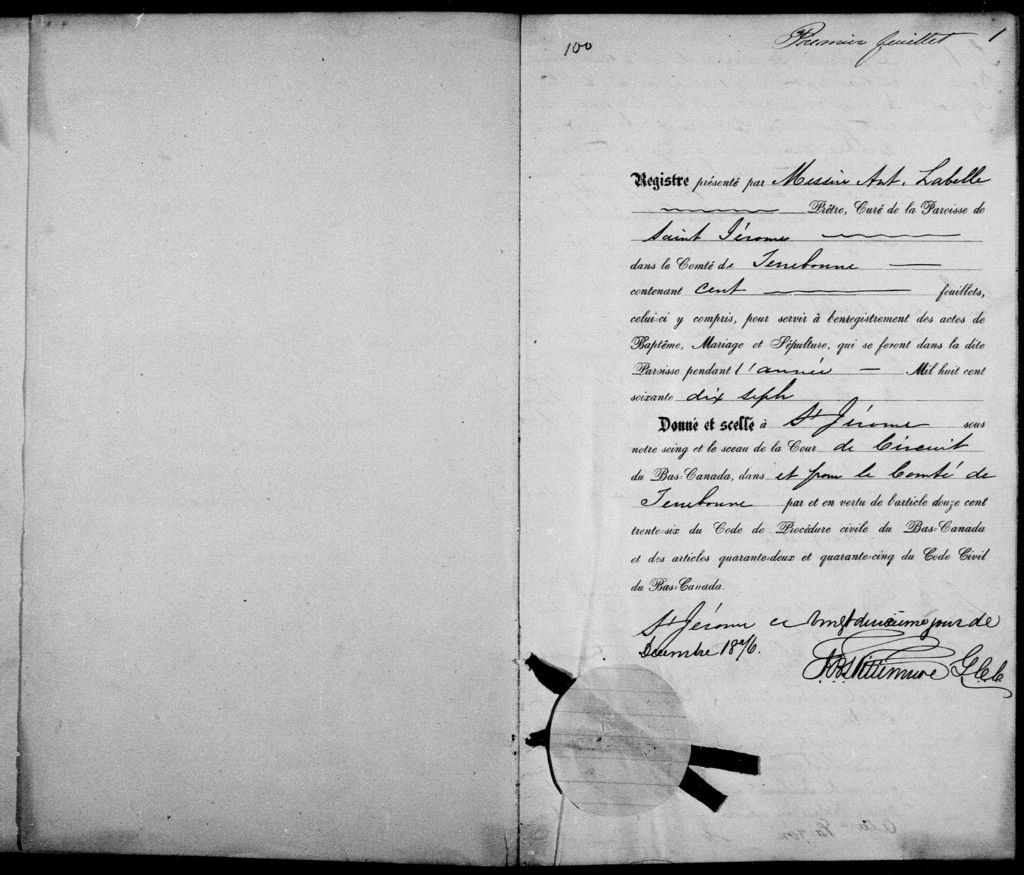 100
Premier feuillet 1
Registre présenté par Messire Ant. Labelle
Prêtre, Curé de la Paroisse de
Saint Jérome
dans le Comté de Terrebonne
contenant cent feuillets,
celui-ci y compris, pour servir à l'enregistrement des actes de
Baptême, Mariage et Sépulture, qui se feront dans la dite
Paroisse pendant l'année Mil huit cent
soixante dix sept
Donné et scellé à St Jérome sous
notre seing et le sceau de la Cour de Circuit
du Bas-Canada, dans et pour le Comté de
Terrebonne par et en vertu de l'article douze cent
trente-six du Code de Procédure civile du Bas-Canada
et des articles quarante-deux et quarante-cinq du Code Civil
du Bas-Canada.
St Jérome ce vingt deuxième jour de
Décembre 1876.
Villemure G.C.C.